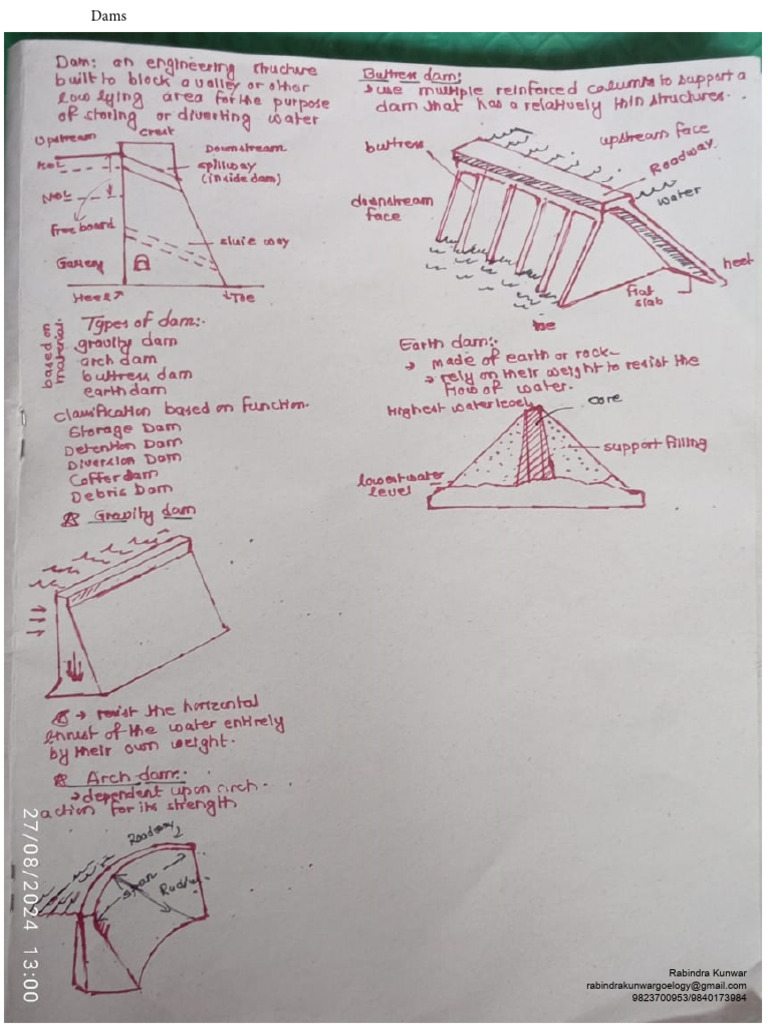 Dams
Dam: an engineering structure
built to block a valley or other
low lying area for the purpose
of storing or diverting water
Upstream
Crest
Downstream
spillway
(inside dam)
NOL
free board
sluie way
Gallery
Heel
Toe
based on
material.
Types of dam:-
gravity dam
arch dam
buttress dam
earth dam
Classification based on function.
Storage Dam
Detention Dam
Diversion Dam
Cofferdam
Debris Dam
Gravity dam
→ resist the horizontal
thrust of the water entirely
by their own weight.
Arch dam:-
→ dependent upon arch
action for its strength
Roadway
span
Radius
Buttress dam:
→ use multiple reinforced columns to support a
dam that has a relatively thin structures.
buttress
upstream face
Roadway
water
downstream
face
heel
flat
slab
toe
Earth dam:-
→ made of earth or rock
→ rely on their weight to resist the
flow of water.
Highest water level
core
support filling
lowest water
level
27/08/2024 13:00
Rabindra Kunwar
rabindrakunwargoelogy@gmail.com
9823700953/9840173984